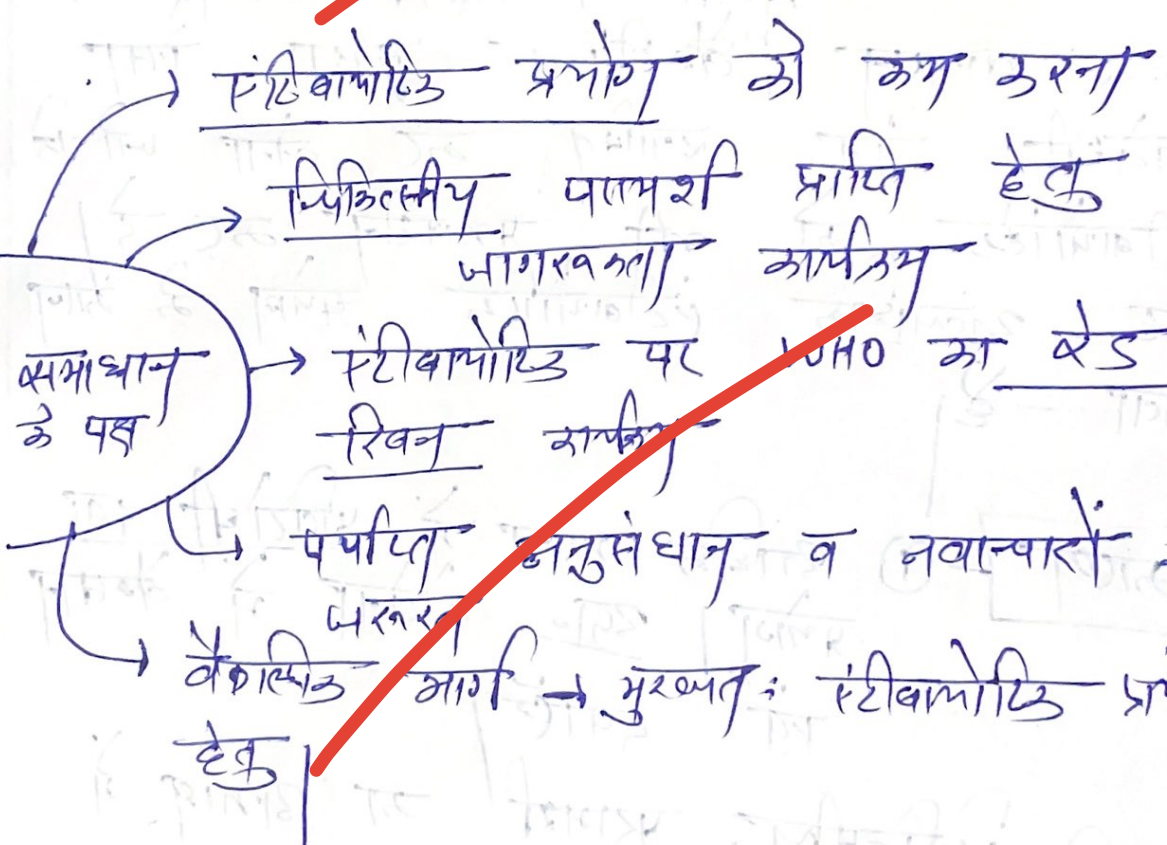 एंटीबायोटिक प्रयोग को कम करना
चिकित्सीय परामर्श प्राप्ति हेतु
जागरूकता कार्यक्रम
समाधान
के पक्ष
एंटीबायोटिक पर WHO का रेड
रिबन कार्यक्रम
पर्याप्त अनुसंधान व नवाचारों
जरूरत
वैकल्पिक मार्ग → मुख्यतः एंटीबायोटिक
हेतु